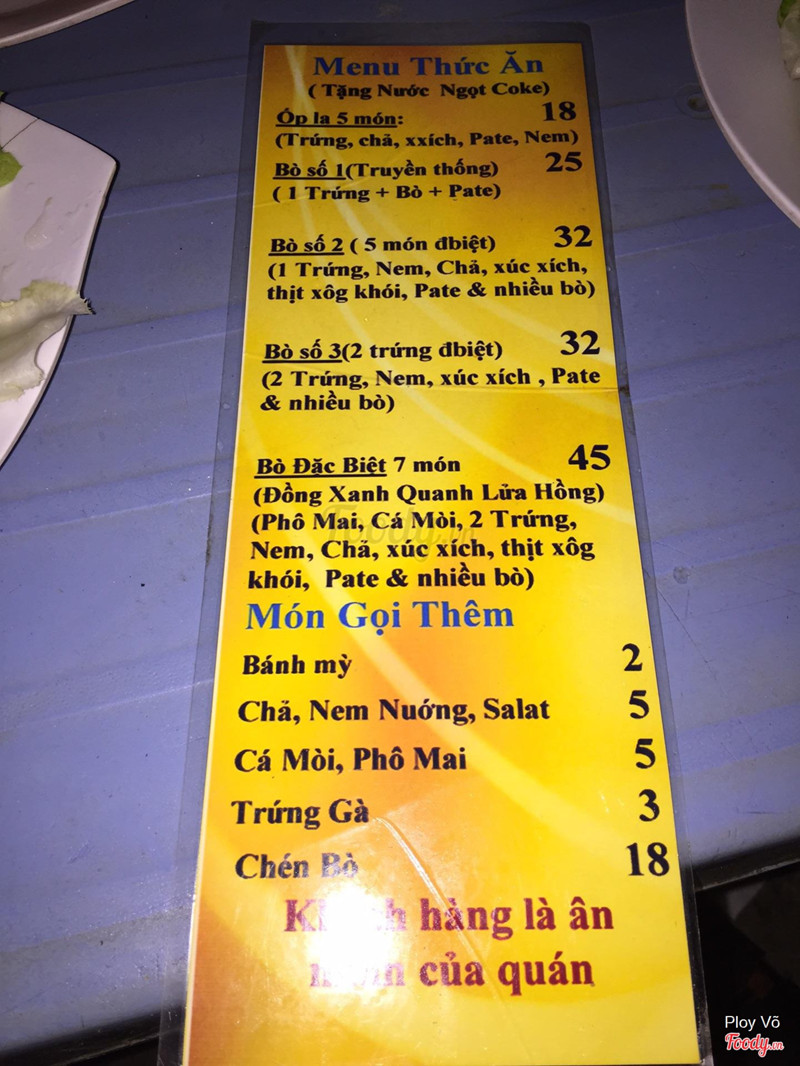 Menu Thức Ăn
( Tặng Nước Ngọt Coke)
Óp la 5 món: 18
(Trứng, chả, xxích, Pate, Nem)
Bò số 1(Truyền thống) 25
( 1 Trứng + Bò + Pate)
Bò số 2 ( 5 món đbiệt) 32
(1 Trứng, Nem, Chả, xúc xích,
thịt xôg khói, Pate & nhiều bò)
Bò số 3(2 trứng đbiệt) 32
(2 Trứng, Nem, xúc xích , Pate
& nhiều bò)
Bò Đặc Biệt 7 món 45
(Đồng Xanh Quanh Lửa Hồng)
(Phô Mai, Cá Mòi, 2 Trứng,
Nem, Chả, xúc xích, thịt xôg
khói, Pate & nhiều bò)
Món Gọi Thêm
Bánh mỳ 2
Chả, Nem Nướng, Salat 5
Cá Mòi, Phô Mai 5
Trứng Gà 3
Chén Bò 18
Khách hàng là ân
nhân của quán
Foody.vn
Ploy Võ
Foody.vn